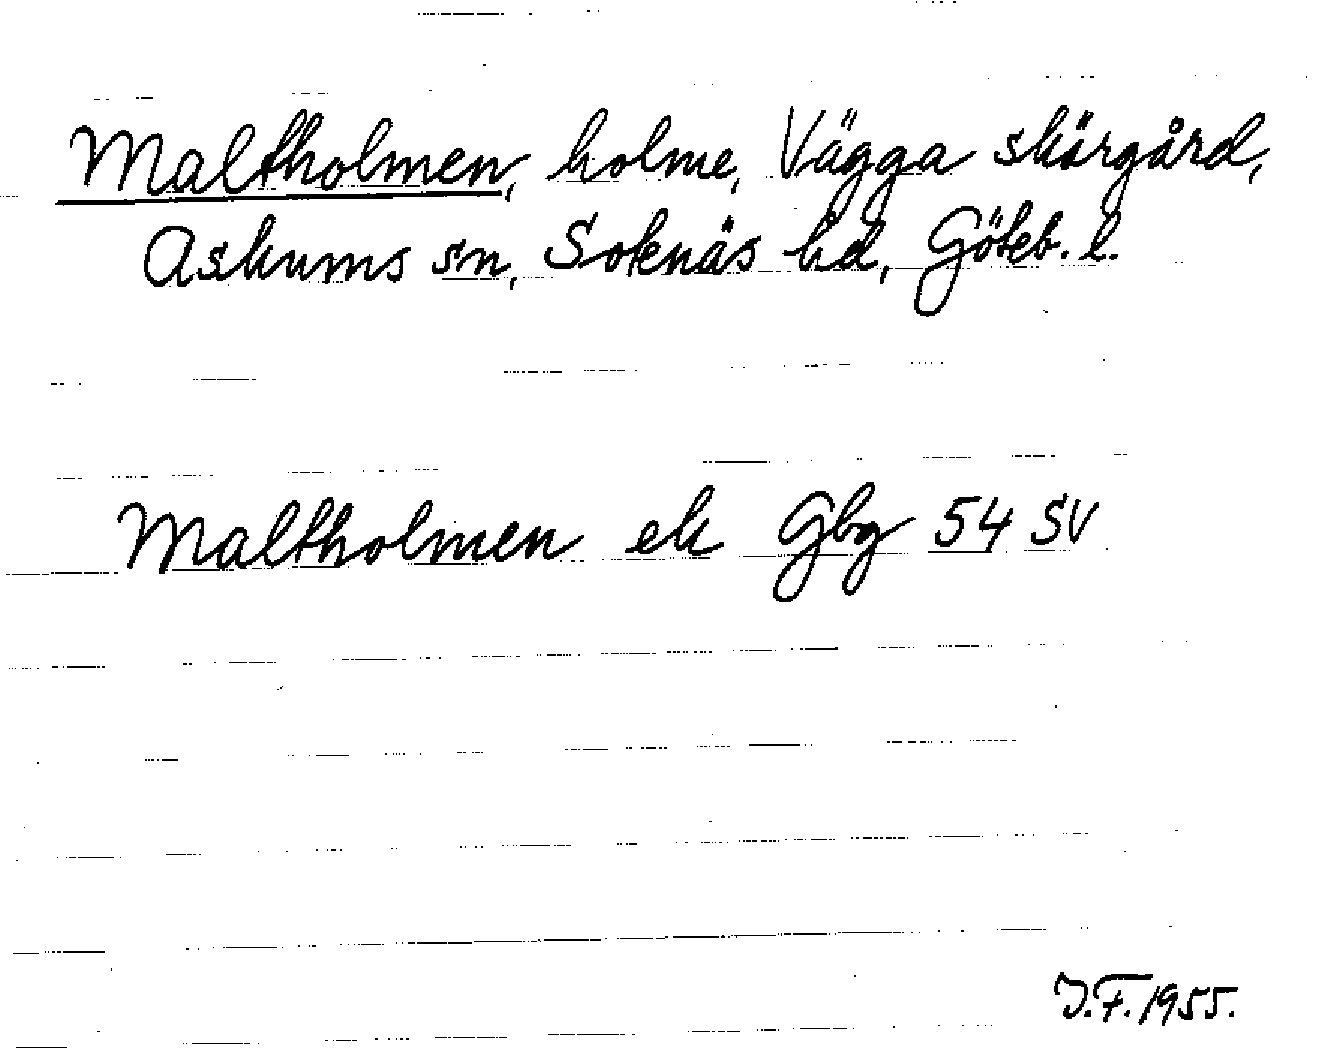 Maltholmen, holme, Vägga skärgård,
Askums sn, Sotenäs hd, Göteb. l.
Maltholmen ek Gbg 54 SV
J.F. 1955.